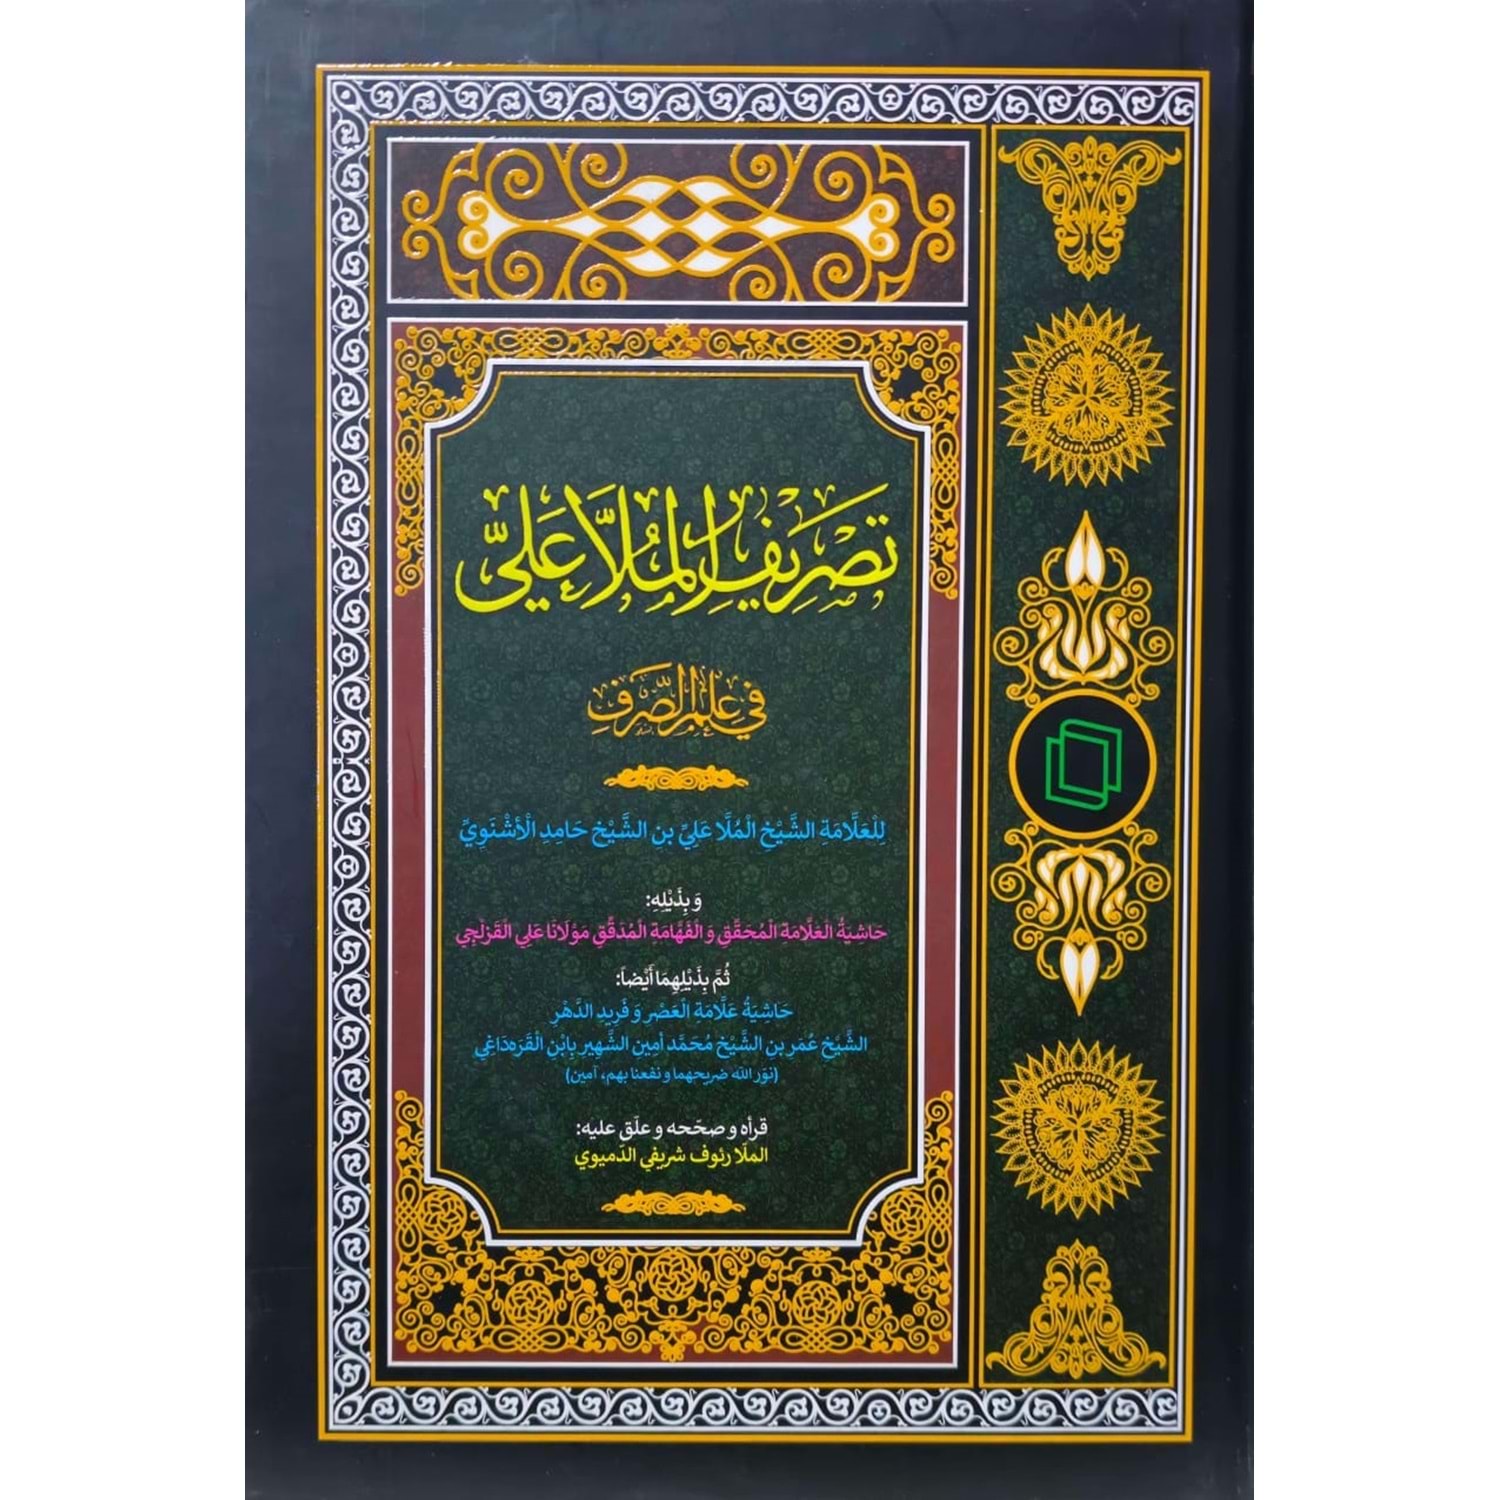 تَصْرِيفُ الْمُلَّا عَلِيّ
فِي عِلْمِ الصَّرْفِ
لِلْعَلَّامَةِ الشَّيْخِ الْمُلَّا عَلِيِّ بنِ الشَّيْخ حَامِدِ الْأُشْنَوِيِّ
وَ بِذَيْلِهِ:
حَاشِيَةُ الْعَلَّامَةِ الْمُحَقِّقِ وَ الْفَهَّامَةِ الْمُدَقِّقِ مَوْلَانَا عَلِي الْقَزَلْجِي
ثُمَّ بِذَيْلِهِمَا أَيْضاً:
حَاشِيَةُ عَلَّامَةِ الْعَصْرِ وَ فَرِيدِ الدَّهْرِ
الشَّيْخ عُمَر بنِ الشَّيْخ مُحَمَّد أمِين الشَّهِير بِابْنِ الْقَرَهدَاغِي
(نوّر الله ضريحهما و نفعنا بهم، آمين)
قرأه و صحّحه و علّق عليه:
الملّا رئوف شريفي الدّميوي